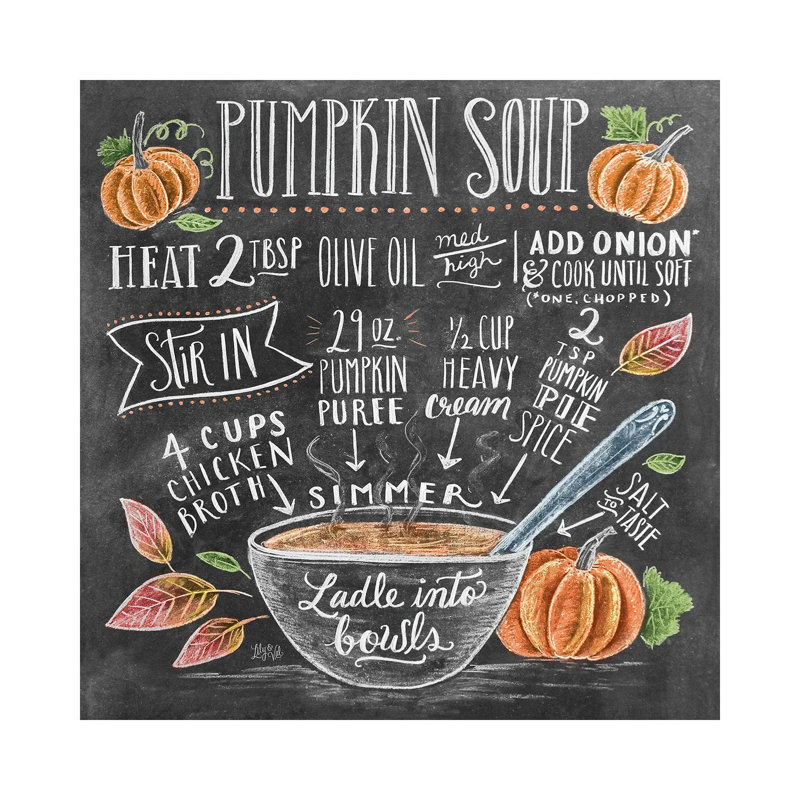 PUMPKIN SOUP
HEAT 2 TBSP OLIVE OIL med high
ADD ONION*
& COOK UNTIL SOFT
(*ONE, CHOPPED)
STIR IN
4 CUPS
CHICKEN
BROTH
29 oz.
PUMPKIN
PUREE
½ CUP
HEAVY
cream
2
TSP
PUMPKIN
PIE
SPICE
SALT
TO
TASTE
SIMMER
Ladle into
bowls
Lily & Val